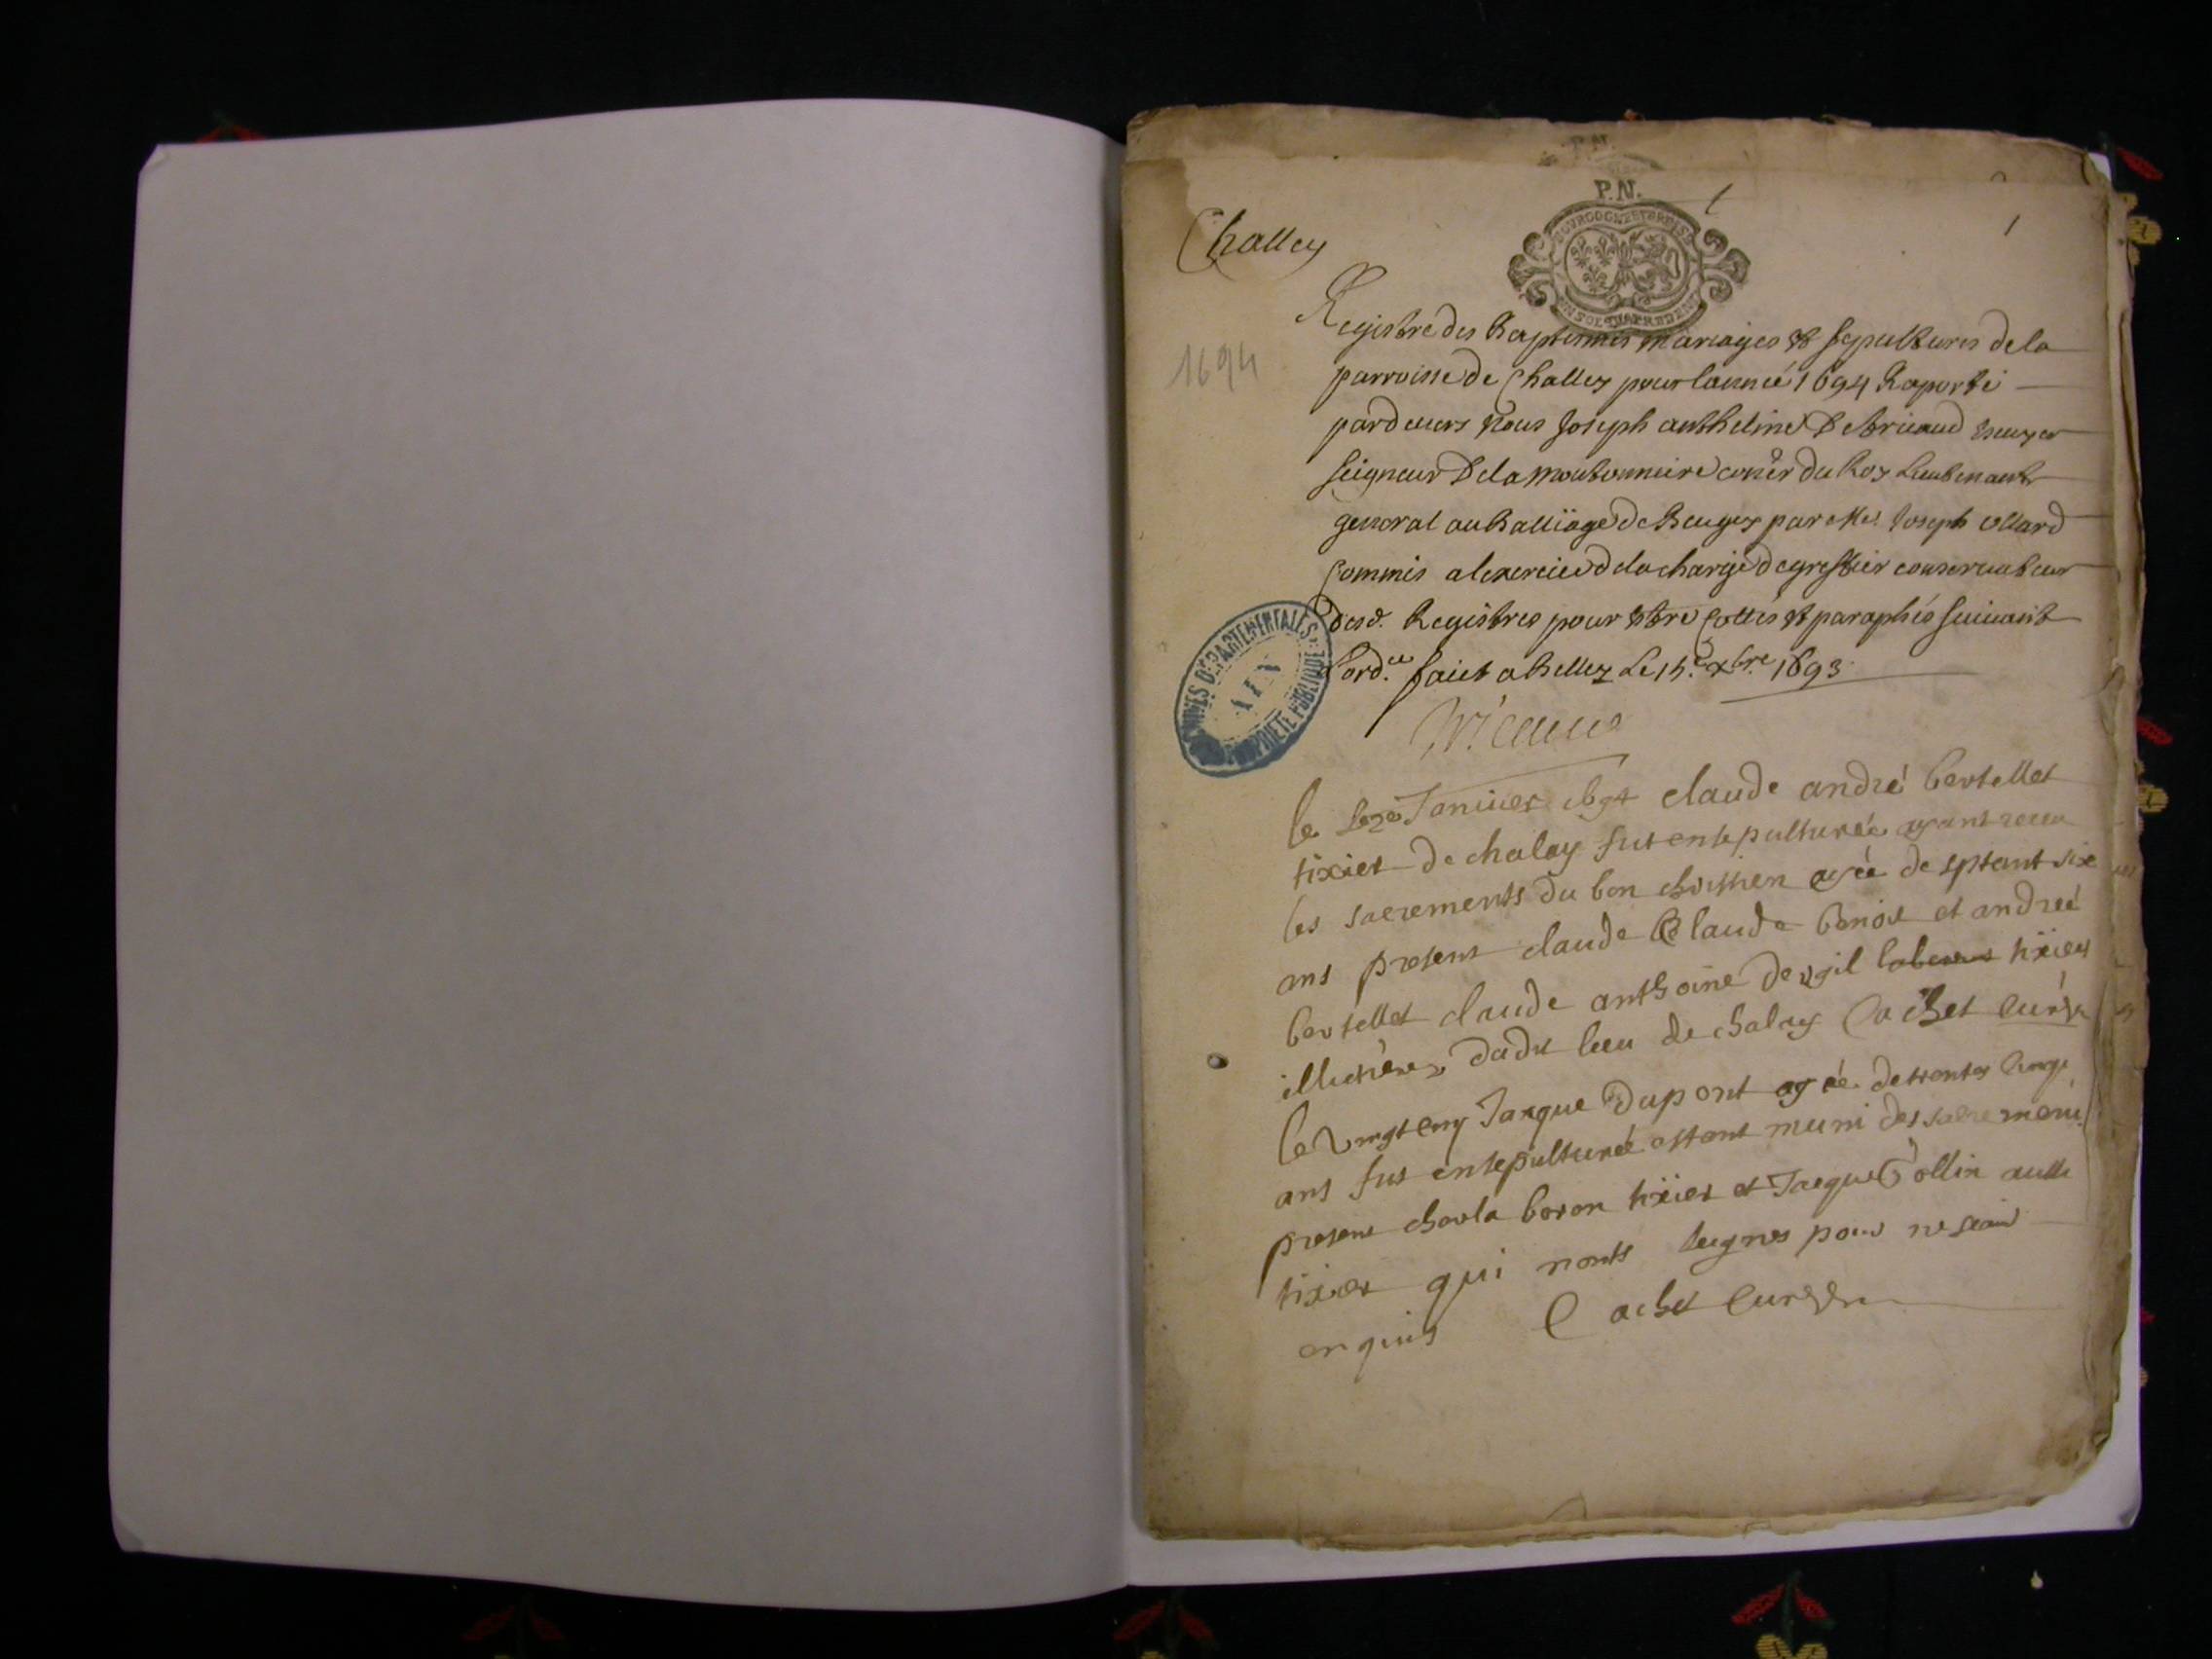 P.N.
1
1
Challey
BOURGOGNE ET BRESSE
1694
Registre des Baptesmes mariages et sepultures de la
parroisse de Challey pour lannee 1694 Raporté
pardevers Nous Joseph anthelme De tricaud escuyer
seigneur De la moutonniere coner du Roy Lieutenant
general au Balliage de Beugey par Me Joseph
Commis a lexercice de la charge de greffier conservateur
desd. Registres pour estre Cottés et paraphés suivant
Lord.ce faict a Belley Le 15.e xbre 1693
ARCHIVES DEPARTEMENTALES
AIN
PROPRIETE PUBLIQUE
Tricaud
le Janvier claude andré bertellet
tixier de chaley fut ensepulturée ayant receu
les sacrements du bon chrestien agée de septant six
ans present claude Claude benoit et andreé
bertellet claude anthoine tixier
dudit lieu de chaley Cachet curé
le vingt cinq Jacque Dupont agée de trente
ans fut ensepulturée estant muni des sacrements
present charle boron tixier et Jacque Collin
tixier qui nonts signes pour ne scavoir
enquis Cachet curé